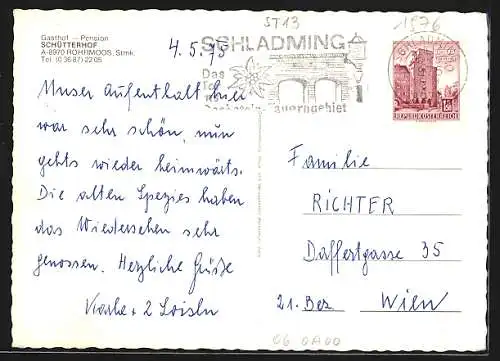 Gasthof — Pension
SCHÜTTERHOF
A-8970 ROHRMOOS, Stmk.
Tel. (0 36 87) 22 05
ST13
1976
4.5.75
SCHLADMING
Das
Unser Aufenthalt hier
war sehr schön, nun
gehts wieder heimwärts.
Die alten Spezies haben
das Wiedersehen sehr
genossen. Herzliche Grüße
+ 2
REPUBLIK ÖSTERREICH
Familie
RICHTER
Daffertgasse 35
21. Bez Wien